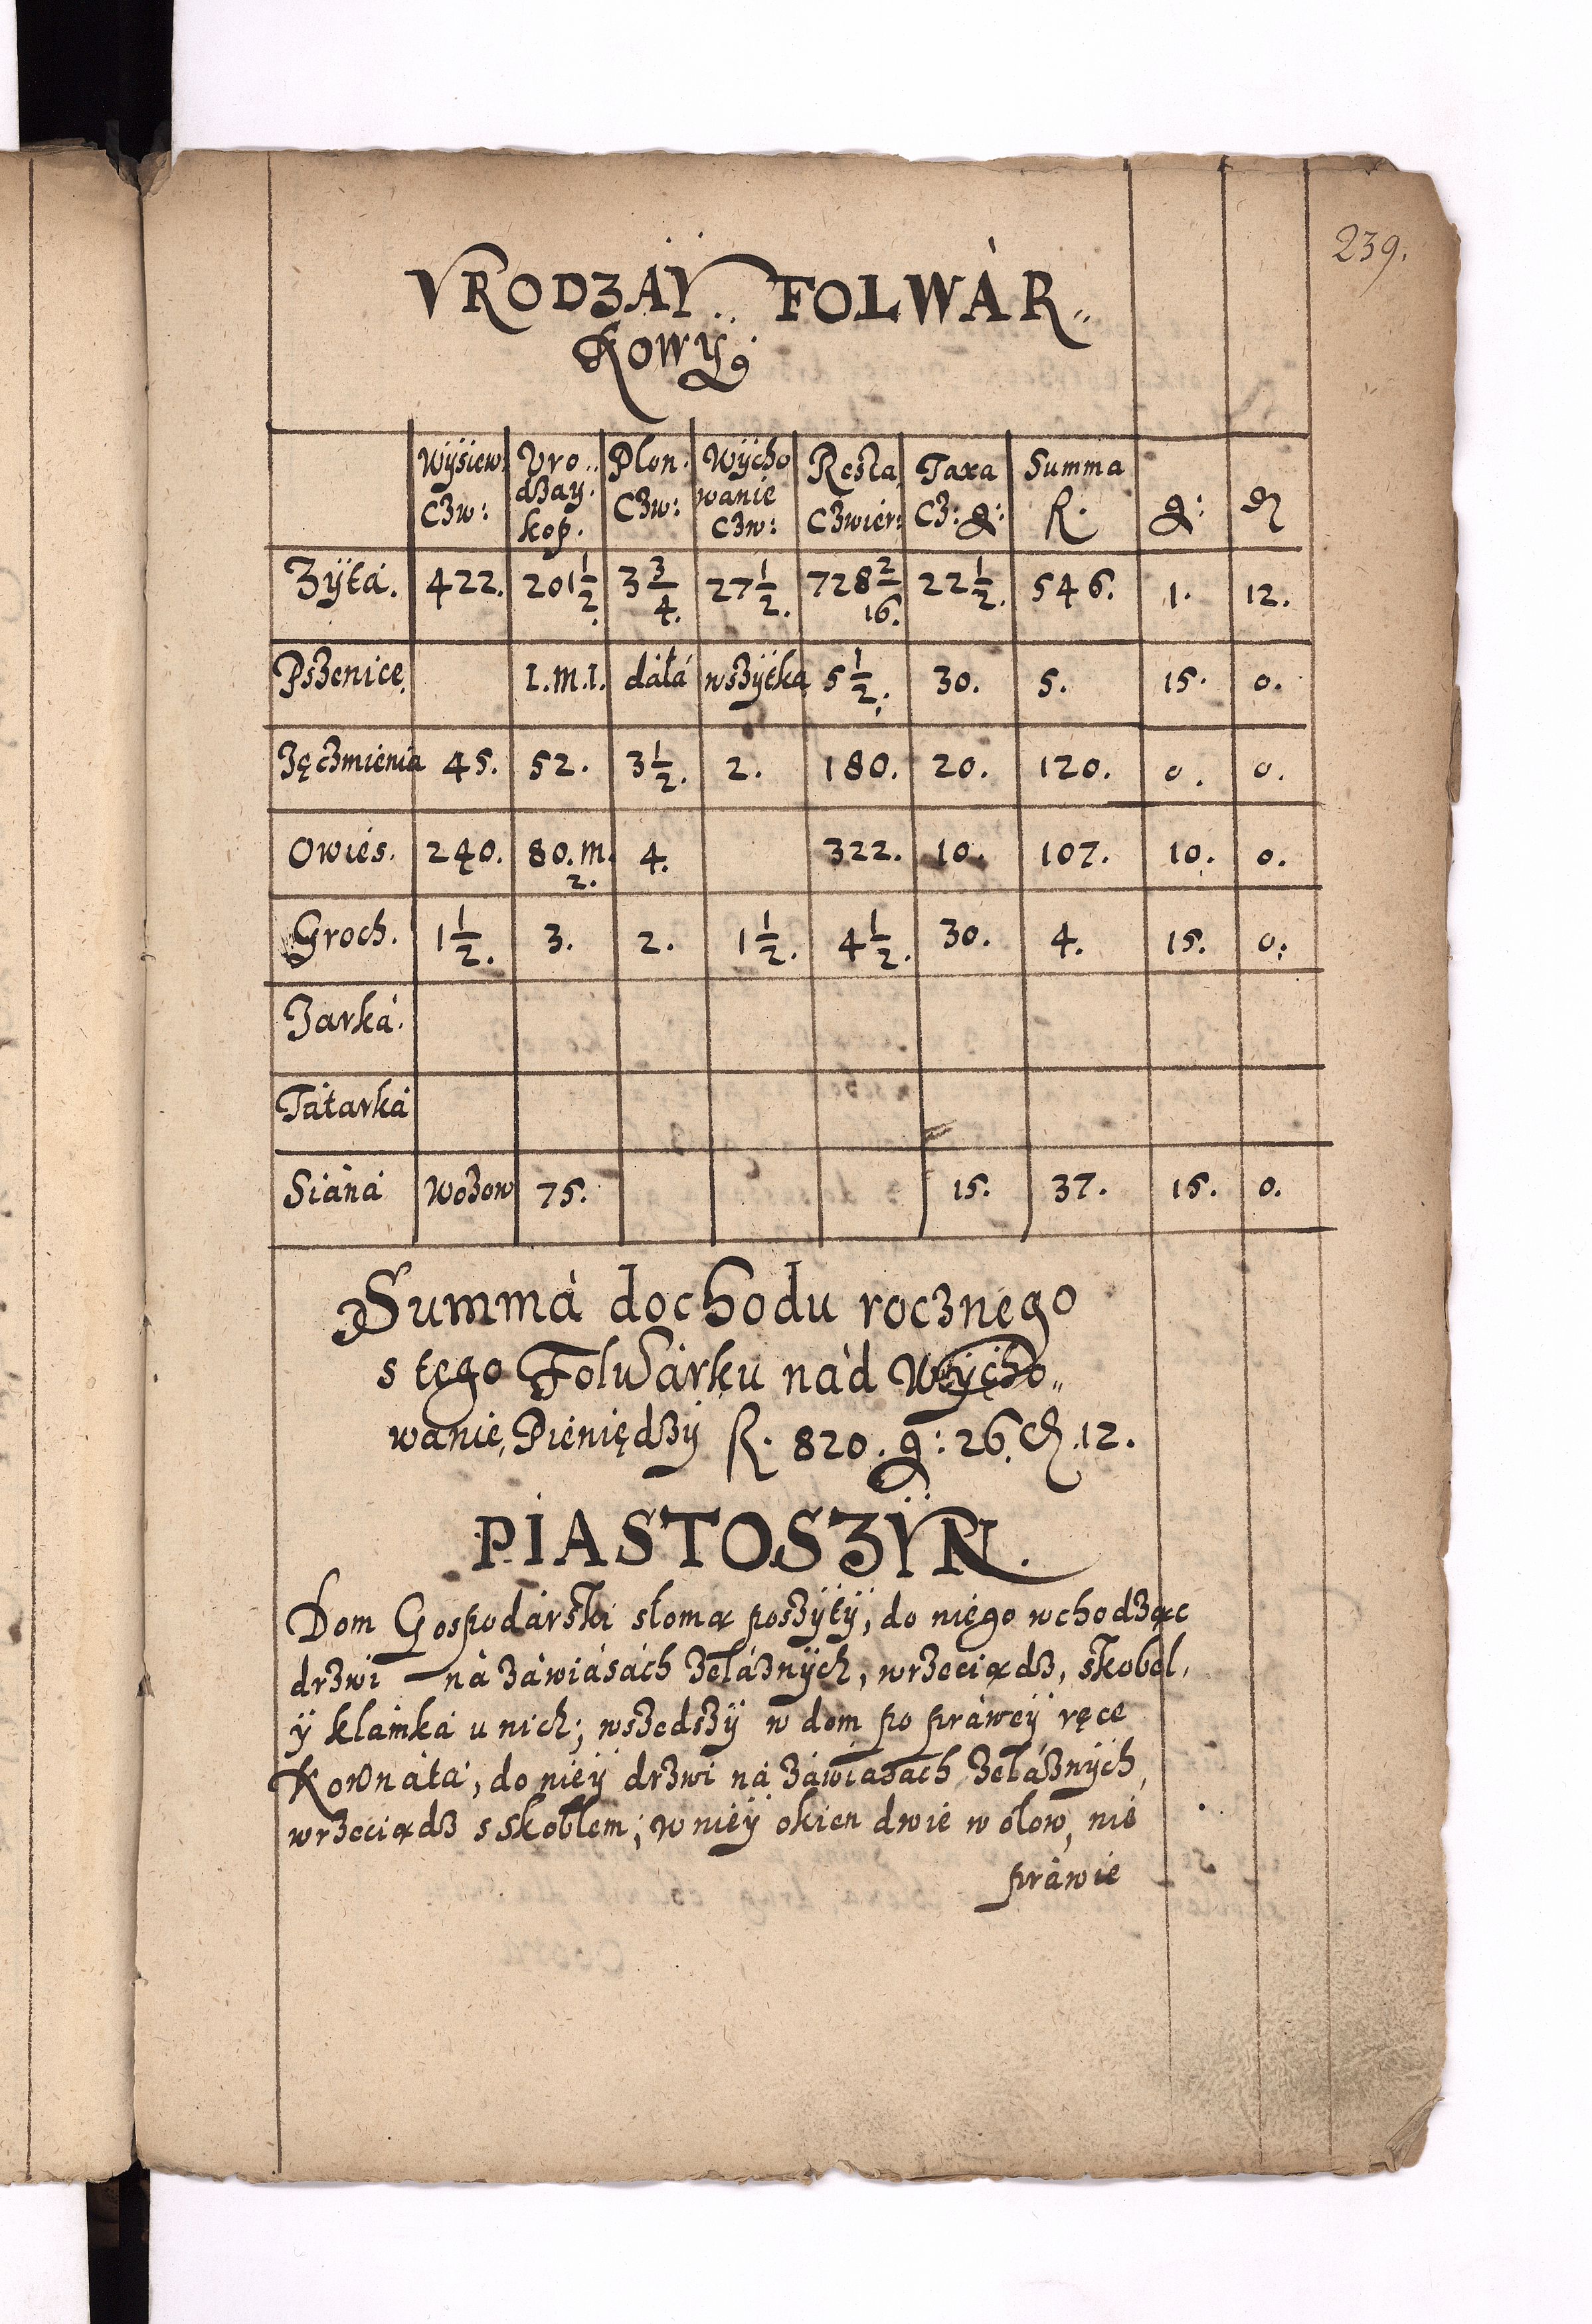 239.
VRODZAY FOLWAR„
Kowy
Wysiew. Czw: Uro„ dzay. kop. Plon. Czw: Wycho wanie Czw: Resta Czwier: Taxa Cz: g: Summa R. g: d
Zyta. 422. 201 1/2. 3 3/4. 27 1/2. 728 2/16. 22 1/2. 546. 1. 12.
Pszenice I.M.I. dáłá wszytka 5 1/2. 30. 5. 15. 0.
Jęczmienia 45. 52. 3 1/2. 2. 180. 20. 120. 0. 0.
Owies. 240. 80.m.2. 4. 322. 10. 107. 10. 0.
Groch. 1 1/2. 3. 2. 1 1/2. 4 1/2. 30. 4. 15. 0.
Jarká.
Tátarká
Siáná Wozow 75. 15. 37. 15. 0.
Summá dochodu rocznego
s tego Folwárku nád Wycho„
wanie, Pieniędzy R. 820. g: 26. d. 12.
PIASTOSZYN.
Dom Gospodárski słomą poszyty, do niego wchodząc
drzwi — ná záwiásách żeláznych, wrzeciądz, skobel,
y klámká u nich; wszedszy w dom po práwey ręce
Kownátá, do niey drzwi ná záwiasách żeláznych,
wrzeciądz s skoblem; w niey okien dwie w ołow, nie
práwie